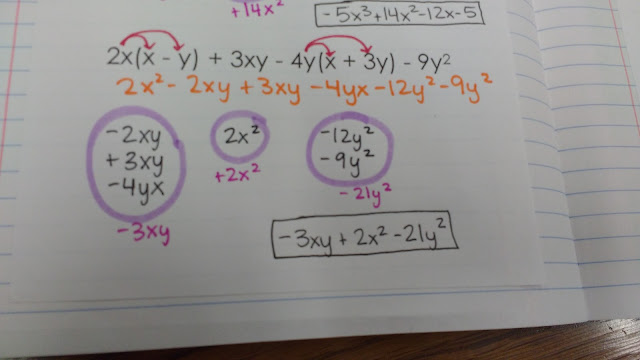 +14x²
-5x³+14x²-12x-5
2x(x - y) + 3xy - 4y(x + 3y) - 9y²
2x² - 2xy + 3xy - 4yx - 12y² - 9y²
-2xy
+3xy
-4yx
-3xy
2x²
+2x²
-12y²
-9y²
-21y²
-3xy + 2x² - 21y²